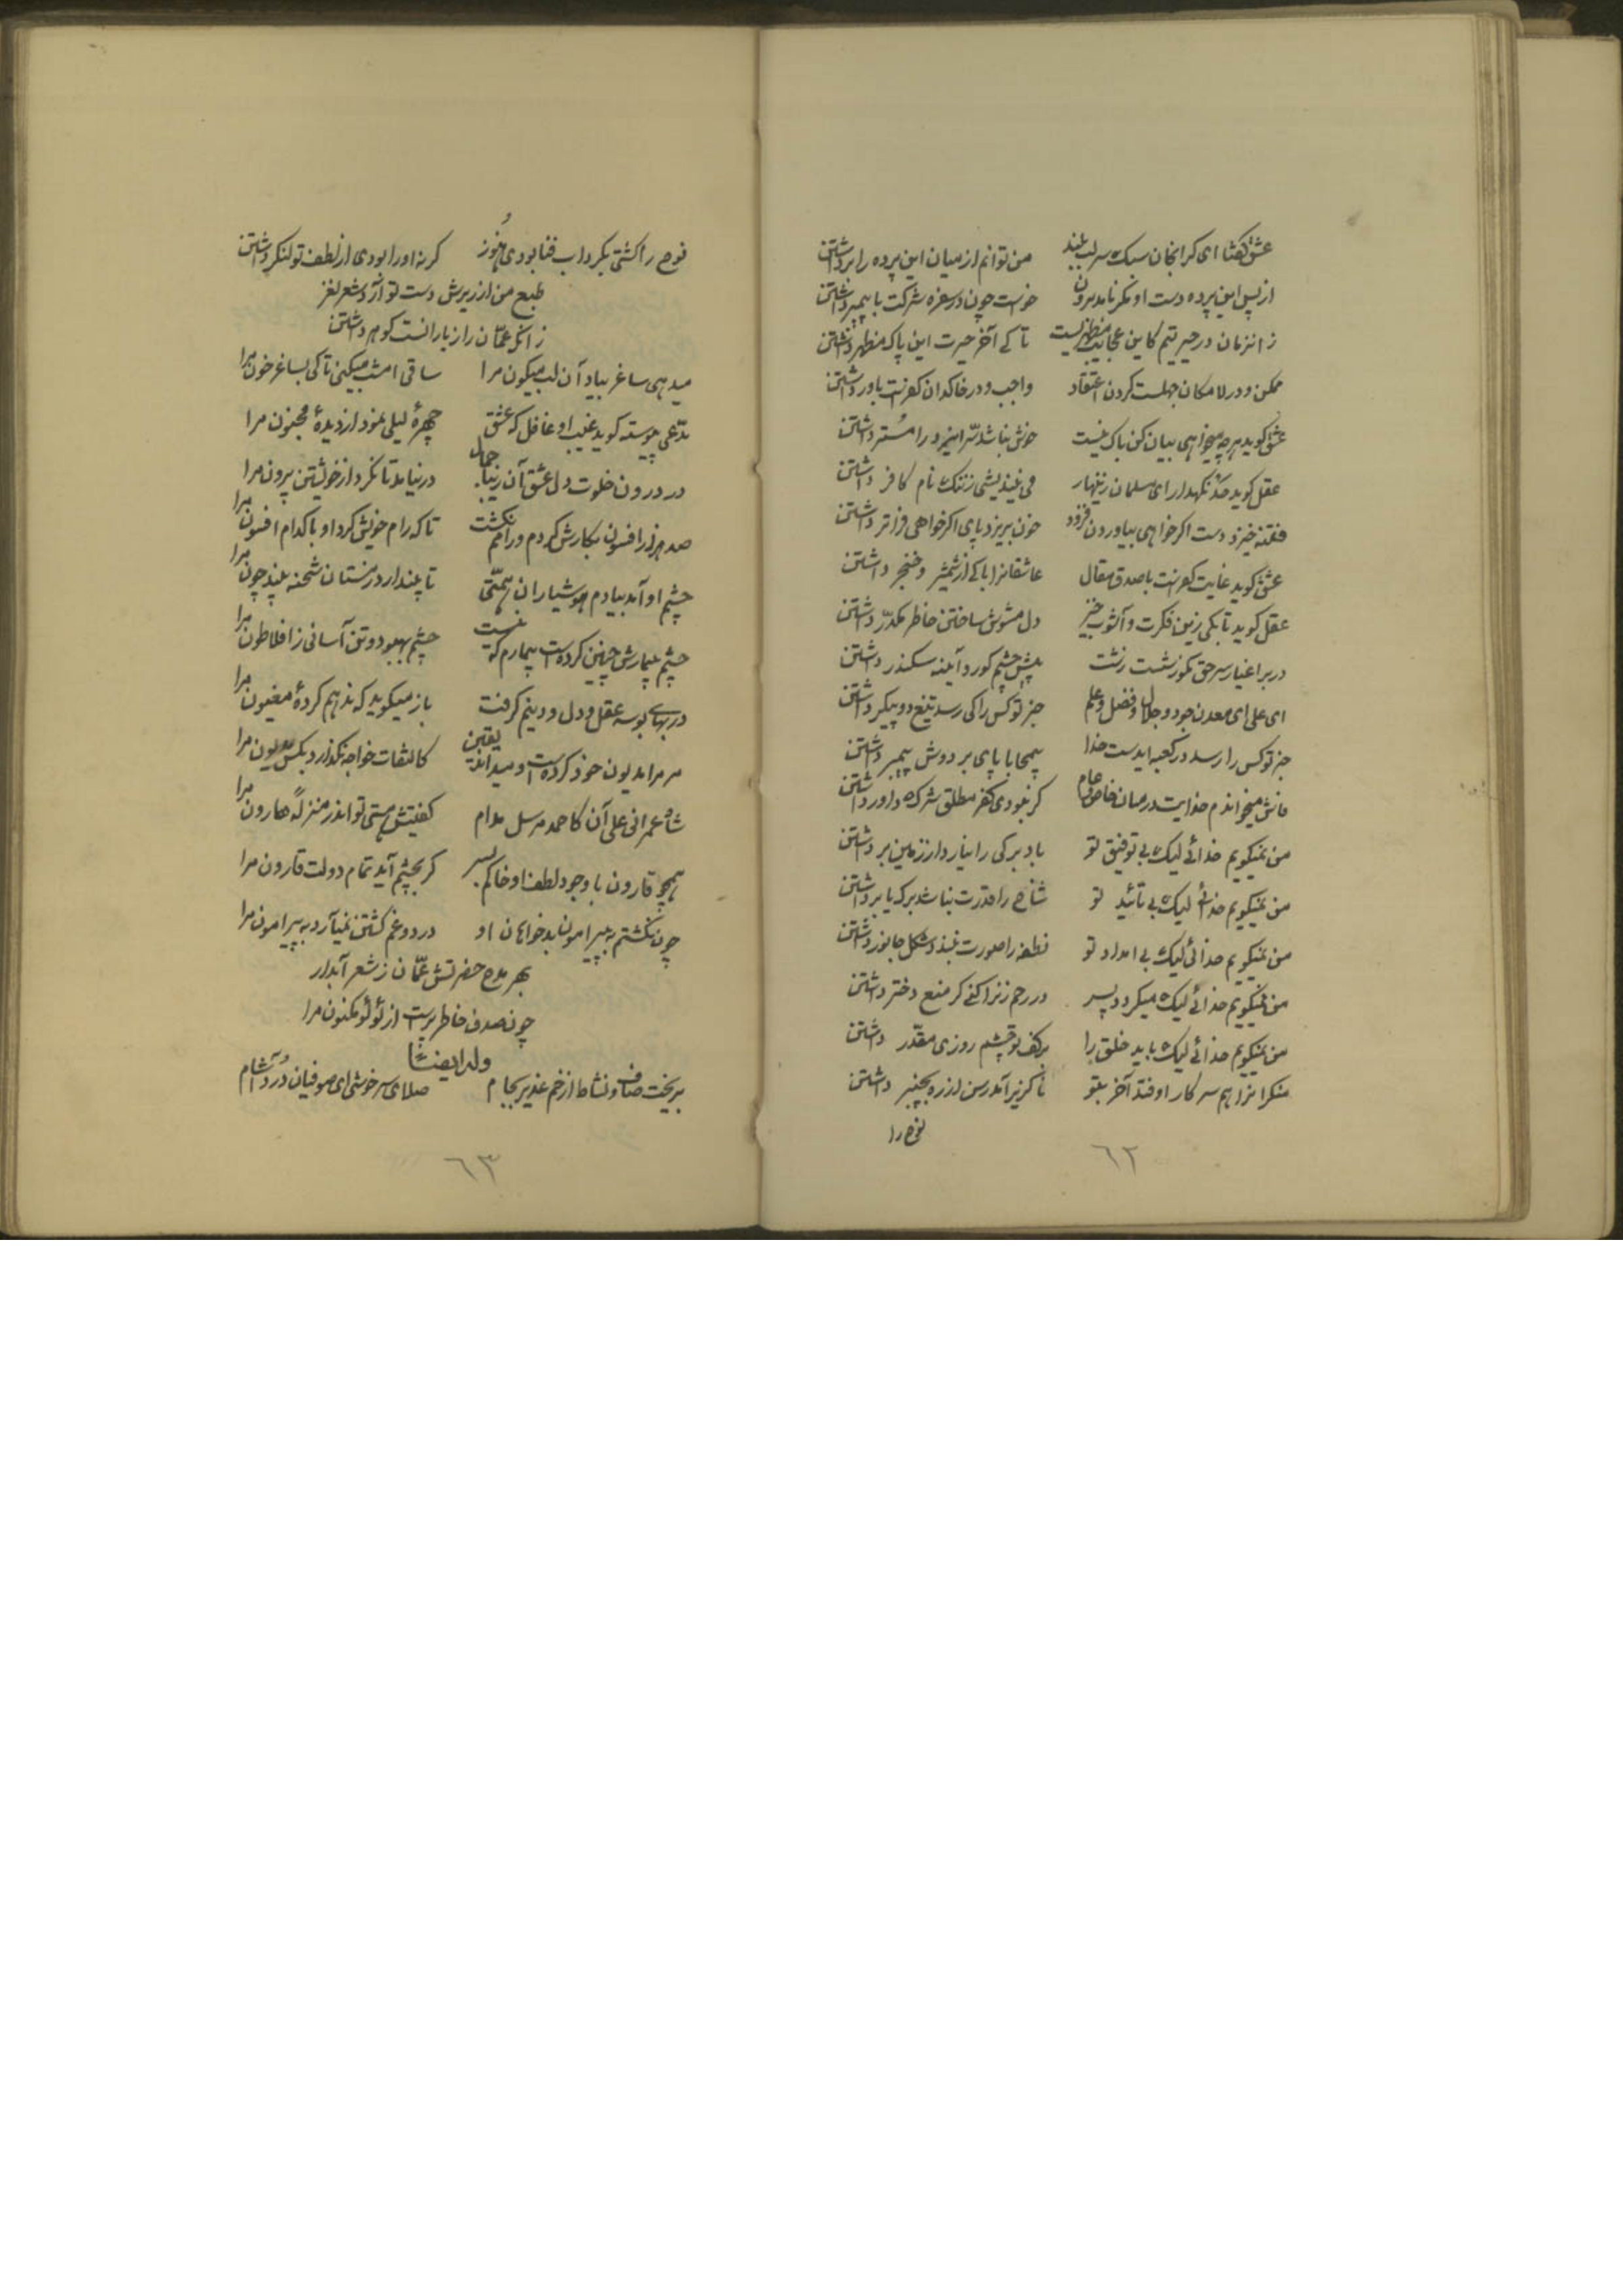 عشق گفتا ای گرانجان سبک سر لب ببند من توانم از میان این پرده را برداشتن
از پس این پرده دست او مگر نامد برون خواست چون در سفره شرکت با پیمبر داشتن
زانزمان در حیرتیم کاین عجایب مظهر کیست تا کی آخر حیرت این پاک مظهر داشتن
ممکن و در لامکان جهلست کردن اعتقاد واجب و در خاکدان کفرنت باور داشتن
عشق گوید هرچه میخواهی بیان کن باک نیست خوش نباشد سر اینمرد را مستر داشتن
عقل گوید حد نگهدار ای مسلمان زینهار می نیندیشی ز ننگ نام کافر داشتن
فتنه خیزد دست اگر خواهی بیاوردن فرود خون بریزد پای اگر خواهی فراتر داشتن
عشق گوید غایت کفرنت با صدق مقال عاشقانرا باکی از شمشیر و خنجر داشتن
عقل گوید تا بکی زین فکرت و آشوب خیز دل مشوش ساختن خاطر مکدر داشتن
در بر اغیار سر حق مگو زشت است زشت پیش چشم کور و آیینه سکندر داشتن
ای علی ای معدن جود و جلال و فضل و علم جز تو کس را کی رسد تیغ دو پیکر داشتن
جز تو کس را رسد در کعبه ای دست خدا بیمحابا پای بر دوش پیمبر داشتن
فاش میخواندم خدایت در میان خاص و عام گر نبودی کفر مطلق شرک داور داشتن
من نمیگویم خدائی لیک بی توفیق تو باد برگی را نیارد از زمین برداشتن
من نمیگویم خدائی لیک بی تائید تو شاخ را قدرت نباشد برگ یا بر داشتن
من نمیگویم خدائی لیک بی امداد تو نطفه را صورت نبندد شکل جانور داشتن
من نمیگویم خدائی لیک میگردد پسر در رحم زنرا کنی گر منع دختر داشتن
من نمیگویم خدائی لیک باید خلق را بر کف تو چشم روزی مقدر داشتن
منکرانرا هم سر کار اوفتد آخر بتو ناگزیر آمد رسن از ره بچنبر داشتن
نوح را
٦٢
نوح را کشتی بگرداب فنا بودی هنوز گر نه او را بودی از لطف تو لنگر داشتن
طبع من از ریزش دست تو آرد شعر نغز
زانکه عمان را ز بارانست گوهر داشتن
میدهی ساغر بیاد آن لب میگون مرا ساقی امشب میکنی تا کی بساغر خون مرا
مدعی پیوسته گوید عیب او غافل که عشق چهرهٔ لیلی نمود از دیدهٔ مجنون مرا
در درون خلوت دل عشق آن زیبا جمال در نیامد تا نکرد از خویشتن بیرون مرا
صد هزار افسون بکارش کردم و رامم نگشت تا که رام خویش کرد او با کدام افسون مرا
چشم او آمد بیادم هوشیاران همتی تا پندارد ز مستان شحنه بیند چون مرا
چشم بیمارش چنین کردست بیمارم که نیست چشم بهبود و تن آسانی ز افلاطون مرا
در بهای بوسه عقل و دل و دینم گرفت باز میگوید که بذر هم کردهٔ مغبون مرا
مر مرا مدیون خود کردست و میداند یقین کالتفات خواجه نگذارد بکس مدیون مرا
شاه عمرانی علی آن کاحمد مرسل مدام گفتیش هستی تو اندر منزله هارون مرا
همچو قارون با وجود لطف او خاکم بسر گر بچشم آید تمام دولت قارون مرا
چون نگشتم به پیرامون بدخواهان او درد و غم گشتن نمیآرد به پیرامون مرا
بهر مدح حضرتش عمان ز شعر آبدار
چون صدف خاطر پرست از لؤلؤ مکنون مرا
وله ایضا
بریخت صاف و نشاط از خم غدیر بجام صلای سرخوشی ای صوفیان درد آشام
٦٣